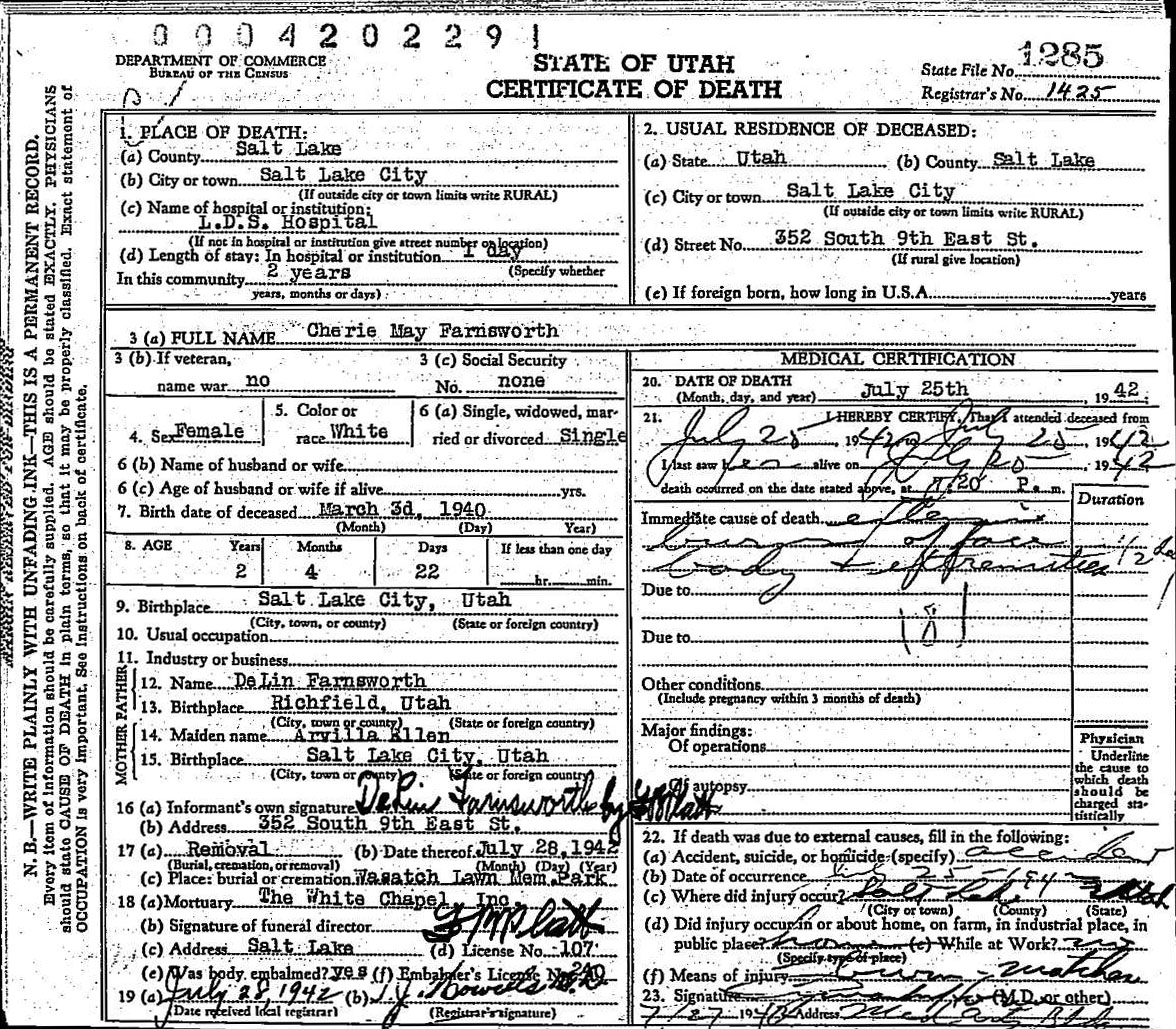 000420229 1
DEPARTMENT OF COMMERCE
BUREAU OF THE CENSUS
STATE OF UTAH
CERTIFICATE OF DEATH
State File No. 1285
Registrar's No. 1425
N. B.—WRITE PLAINLY WITH UNFADING INK—THIS IS A PERMANENT RECORD.
Every item of information should be carefully supplied. AGE should be stated EXACTLY. PHYSICIANS
should state CAUSE OF DEATH in plain terms, so that it may be properly classified. Exact statement of
OCCUPATION is very important. See instructions on back of certificate.
1. PLACE OF DEATH:
(a) County Salt Lake
(b) City or town Salt Lake City
(If outside city or town limits write RURAL)
(c) Name of hospital or institution:
L.D.S. Hospital
(If not in hospital or institution give street number or location)
(d) Length of stay: In hospital or institution 1 day
(Specify whether
In this community 2 years
years, months or days)
2. USUAL RESIDENCE OF DECEASED:
(a) State Utah (b) County Salt Lake
(c) City or town Salt Lake City
(If outside city or town limits write RURAL)
(d) Street No. 352 South 9th East St.
(If rural give location)
(e) If foreign born, how long in U.S.A. years
3 (a) FULL NAME Cherie May Farnsworth
3 (b) If veteran, 3 (c) Social Security
name war no No. none
4. Sex Female 5. Color or race White 6 (a) Single, widowed, married or divorced Single
6 (b) Name of husband or wife
6 (c) Age of husband or wife if alive yrs.
7. Birth date of deceased March 3d, 1940
(Month) (Day) Year)
8. AGE Years Months Days If less than one day
2 4 22 hr. min.
9. Birthplace Salt Lake City, Utah
(City, town, or county) (State or foreign country)
10. Usual occupation
11. Industry or business
FATHER
12. Name DeLin Farnsworth
13. Birthplace Richfield, Utah
(City, town or county) (State or foreign country)
MOTHER
14. Maiden name Arvilla Ellen
15. Birthplace Salt Lake City, Utah
(City, town or county) (State or foreign country
16 (a) Informant's own signature DeLin Farnsworth by Platt
(b) Address 352 South 9th East St.
17 (a) Removal (b) Date thereof July 28, 1942
(Burial, cremation, or removal) (Month) (Day) (Year)
(c) Place: burial or cremation Wasatch Lawn Mem. Park
18 (a) Mortuary The White Chapel, Inc
(b) Signature of funeral director Platt
(c) Address Salt Lake (d) License No. 107
(e) Was body embalmed? yes (f) Embalmer's License No. 240
19 (a) July 28, 1942 (b)
(Date received local registrar) (Registrar's signature)
MEDICAL CERTIFICATION
20. DATE OF DEATH July 25th, 1942
(Month, day, and year)
21. I HEREBY CERTIFY, That I attended deceased from
July 25, 1942 July 25, 1942
I last saw her alive on July 25, 1942
death occurred on the date stated above, at .20 P. m.
Duration
Immediate cause of death
burns of face
body + extremities 1/2 da
Due to
Due to
Other conditions
(Include pregnancy within 3 months of death)
Major findings:
Of operations
Of autopsy
Physician
Underline
the cause to
which death
should be
charged sta-
tistically
22. If death was due to external causes, fill in the following:
(a) Accident, suicide, or homicide (specify) accident
(b) Date of occurrence July 25 - 1942
(c) Where did injury occur? Salt Lake Utah
(City or town) (County) (State)
(d) Did injury occur in or about home, on farm, in industrial place, in
public place? home (e) While at Work? no
(Specify type of place)
(f) Means of injury burn - matches
23. Signature (M.D. or other)
7/27 194 Address Med Arts Bld